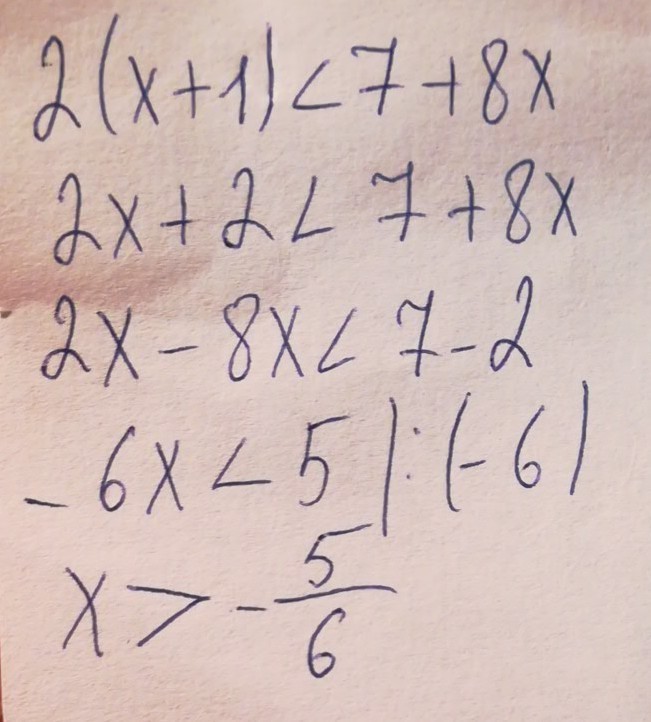 2(x+1)<7+8x
2x+2<7+8x
2x-8x<7-2
-6x<5|:(-6)
x>-5/6